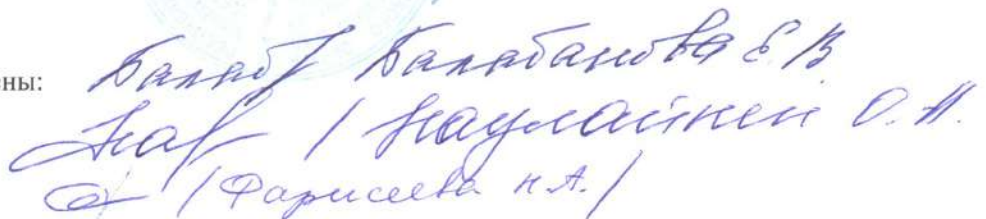 ены: Балаб / Балабанова Е В
Нау / Наулайнен О. Н.
/ Фарисеева Н.А. /